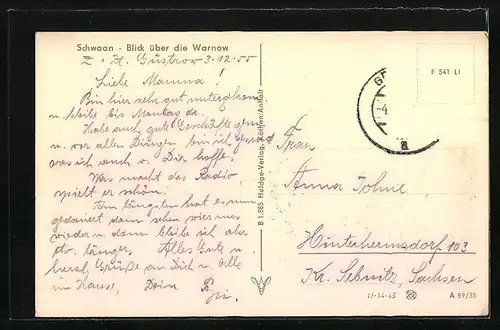 Schwaan - Blick über die Warnow
Z. Zt. Güstrow 3.12.55
Liebe Mamma!
Bin hier sehr gut untergekom.
u. bleibe bis Montag da.
Habe auch gute Geschäfte gem.
u. vor allen Dingen bin ich gesund
was ich auch v. Dir hoffe!
Was macht das Radio
spielt er schön.
Am längsten hat es nun
gedauert dann sehen wir uns
wieder u. dann bleibe ich aber
länger. Alles Gute u.
herzl. Grüße an Dich u. Alle
im Hause, Dein
B 1.885 Heldge-Verlag, Köthen/Anhalt
F 541 LI
Frau
Anna Johne
Hinterhermsdorf 103
Kr. Sebnitz, Sachsen
A 89/55